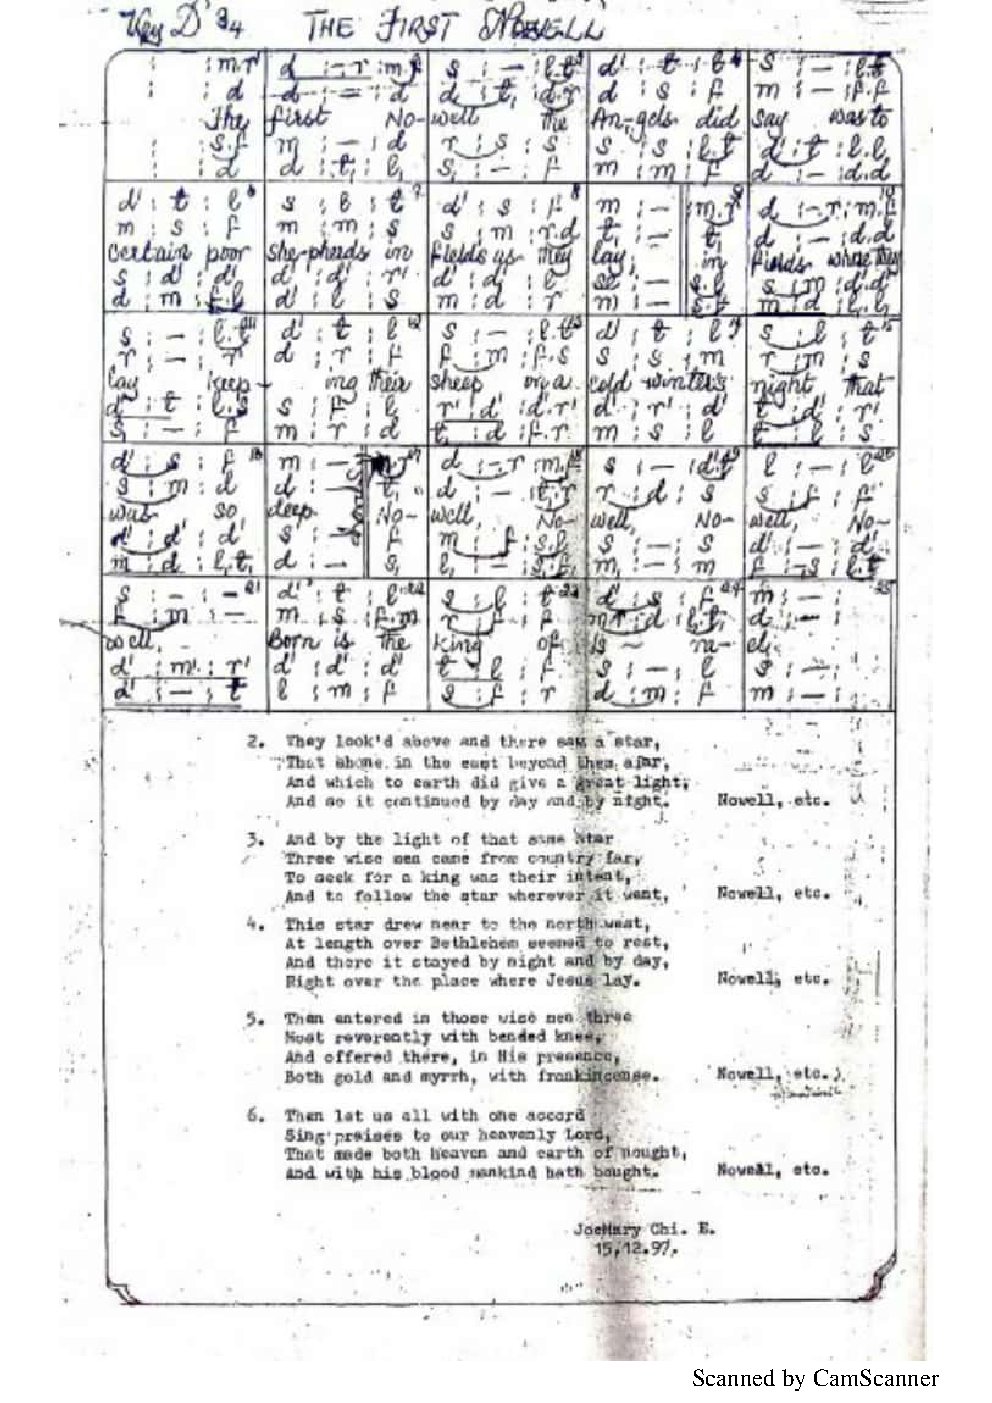 Key D 3/4 THE FIRST NOWELL
: : m.r' | d : - . r : m.f | s : - : l.t | d' : t : l | s : - : l.t
: : d | d : - : d | d : t, : d.r | d : s : f | m : - : f.f
The first No- well the An-gels did say was to
: : s.f | m : - : d | r : s : s | s : s : l.t | d' : t : l.l
: : d | d : t, : l, | s, : - : f | m : m : f | d : - : d.d
d' : t : l | s : l : t | d' : s : f | m : - : m.r | d : - . r : m.f
m : s : f | m : m : s | s : m : r.d | t, : - : t, | d : - : d.d
certain poor she-pherds in fields as they lay; in fields where they
s : d' : d' | d' : d' : r' | d' : d' : l | se : - : s.l | s : m : d.d
d : m : f.l | d' : l : s | m : d : r | m : - : s.f | m : d : l,.l,
s : - : l.t | d' : t : l | s : - : l.t | d' : t : l | s : l : t
r : - : r | d : r : f | f : m : f.s | s : s : m | r : m : s
lay keep - ing their sheep on a cold winter's night that
d' : t : l.s | s : f : l | r' : d' : d'.r' | d' : r' : d' | t : d' : r'
s : - : f | m : r : d | t : d : f.r | m : s : l | t : l : s
d' : s : f | m : - : m.r | d : - . r : m.f | s : - : d'.t | l : - : l
s : m : d | d : - : t, | d : - : t,.r | r : d : s | s : f : f
was so deep. No- well, No- well, No- well, No-
d' : d' : d' | s : - : f | m : f : s.l | s : - : s | d' : - : d'
m : d : l,.t, | d : - : s, | l, : - : s.f | m, : - : m | f : s : l.t
s : - : - | d' : t : l | s : l : t | d' : s : f | m : - :
f : m : - | m : s : f.m | r : f : f | m.r : d : l,.t, | d : - :
well, Born is the King of Is - ra- el.
d' : m' : r' | d' : d' : d' | t : l : f | s : - : l | s : - :
d' : - : t | l : m : f | s : f : r | d : m : f | m : - :
2. They look'd above and there saw a star,
That shone in the east beyond them afar,
And which to earth did give a great light,
And so it continued by day and by night. Nowell, etc.
3. And by the light of that same star
Three wise men came from country far,
To seek for a king was their intent,
And to follow the star wherever it went, Nowell, etc.
4. This star drew near to the north west,
At length over Bethlehem seemed to rest,
And there it stayed by night and by day,
Right over the place where Jesus lay. Nowell, etc.
5. Then entered in those wise men three
Most reverently with bended knee,
And offered there, in His presence,
Both gold and myrrh, with frankincense. Nowell, etc.
6. Then let us all with one accord
Sing praises to our heavenly Lord,
That made both heaven and earth of nought,
And with his blood mankind hath bought. Nowell, etc.
JoeMary Chi. E.
15.12.97.
Scanned by CamScanner